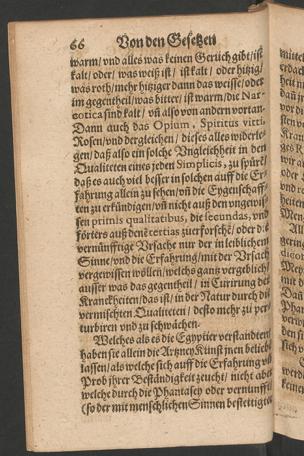 66 Von den Gesetzen
warm/vnd alles was keinen Geruch gibt/ist
kalt/oder/was weiß ist/ist kalt/oder hitzig/
was roth/mehr hitziger dann das weisse/oder
im gegentheil/was bitter/ist warm/die Nar-
cotica sind kalt/vñ also von andern vortan.
Dann auch das Opium, Spiritus vitri,
Rosen/vnd dergleichen/dieses alles widerle-
gen/daß also ein solche Vngleichheit in den
Qualiteten eines jeden Simplicis, zu spürẽ/
daß es auch viel besser in solchen auff die Er-
fahrung allein zu sehen/vñ die Eygenschaff-
ten zu erkündigen/vñ nicht auß den vngewis-
sen primis qualitatibus, die secundas, vnd
förters auß denẽ tertias zuerforschẽ/oder die
vernünfftige Vrsach nur der in leiblichem
Sinne/vnd die Erfahrung/mit der Vrsach
vergewissen wöllen/welchs gantz vergeblich/
ausser was das gegentheil/in Curirung der
Kranckheiten/das ist/in der Natur durch die
vermischten Qualiteten/desto mehr zu per-
turbiren vnd zu schwächen.
Welches als es die Egyptier verstanden/
haben sie allein die Artzney Kunst jnen belieben
lassen/als welche sich auff die Erfahrung vñ
Prob jhrer Beständigkeit zeucht/nicht aber
welche durch die Phantasey oder vernunfft
(so der mit menschlichen Sinnen bestettiget